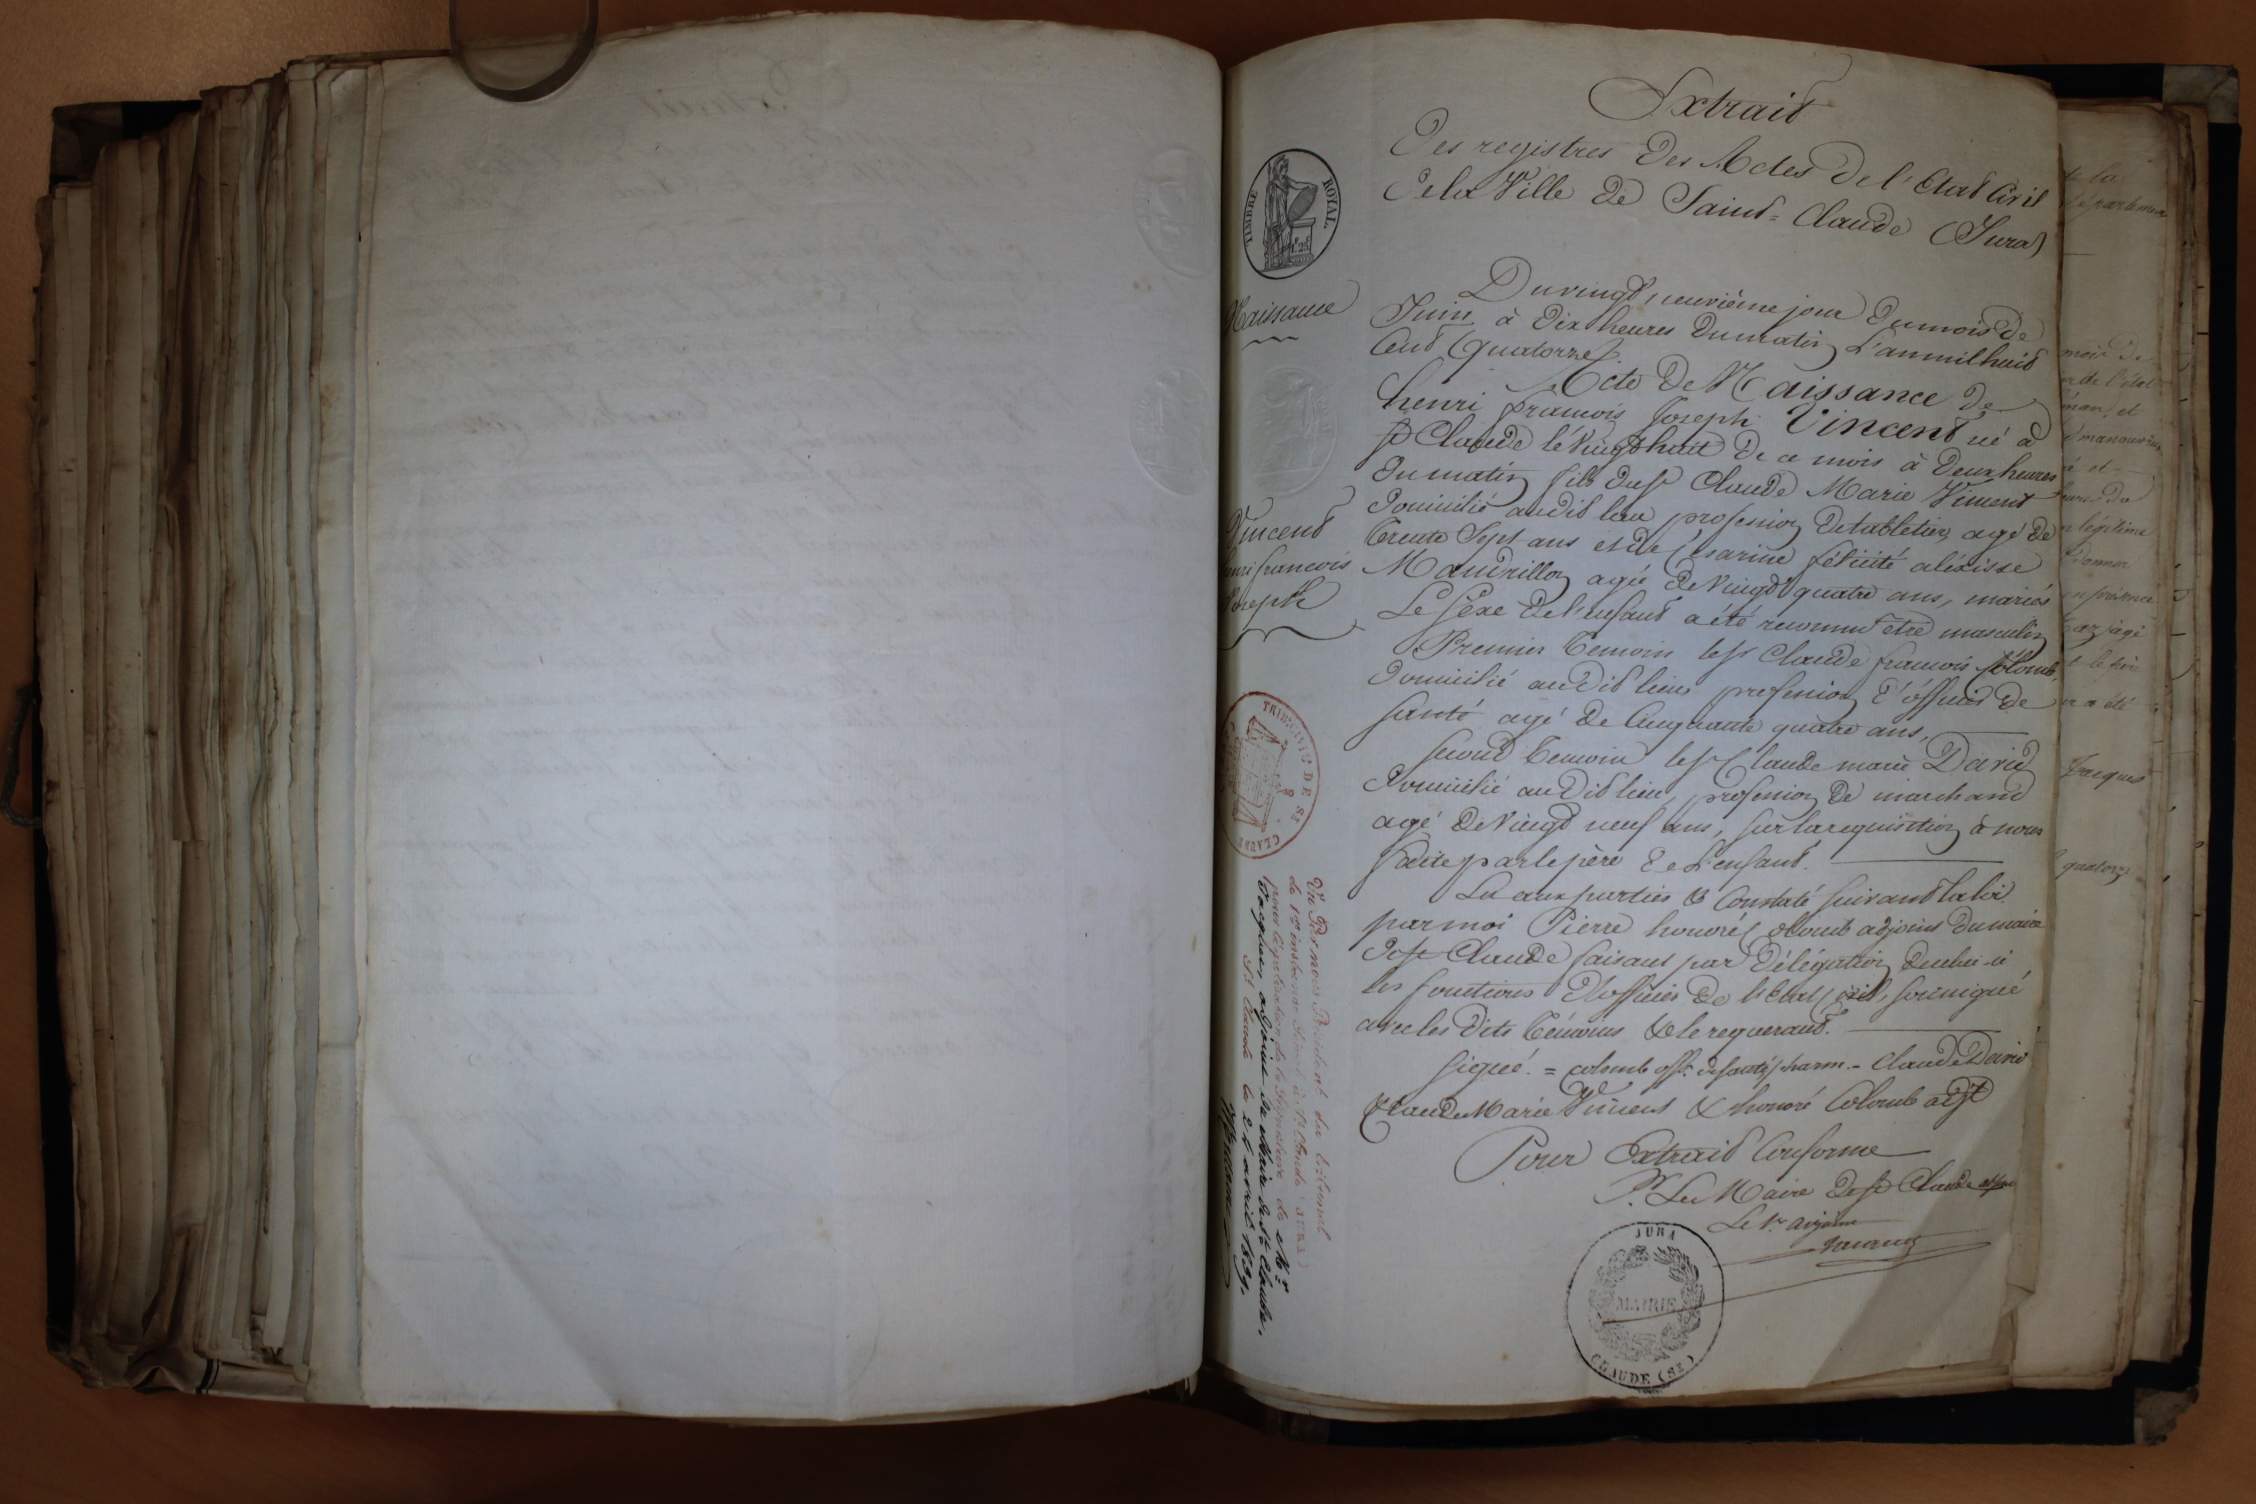 Extrait
Des registres Des Actes De l'Etat Civil
De la Ville De Saint=Claude (Jura)
TIMBRE ROYAL
Naissance
Vincent
henri francois
Joseph
Du vingt neuvième jour Du mois De
Juin à Dix heures Du matin L'an mil huit
Cent Quatorze
Acte De Naissance De
henri françois Joseph Vincent né à
St Claude le Vingt huit De ce mois à Deux heures
Du matin fils Du Sr Claude Marie Vincent
Domicilié audit lieu profession De tabletier agé De
Trente Sept ans et de Césarine félicité aléxisse
Mandrillon agée De Vingt quatre ans, mariés
Le Séxe De l'enfant a été reconnu être masculin
Premier Temoin le Sr Claude françois Colomb
Domicilié au Dit lieu profession D'officier De
Santé agé De Cinquante quatre ans.
Second Témoin le Sr Claude marie David
Domicilié au Dit lieu, profession De marchand
agé De Vingt neuf ans, sur la requisition à nous
faite par le père De L'enfant.
Lu aux parties & Constaté suivant la loi
par moi Pierre honoré Colomb adjoint Du maire
De St Claude faisant par Délégation De celui-ci
les fonctions D'officier De l'Etat Civil, soussigné
avec les Dits Témoins & le requerant.
Signé. = Colomb off. De santé, pharm. - Claude David
Claude Marie Vincent & honoré Colomb adjt
Pour Extrait Conforme
Pr. Le Maire De St Claude
Le 1er adjoint
JURA
MAIRIE
CLAUDE (St.)
TRIB. CIVIL DE ST CLAUDE
Vu Par nous Président du tribunal
de 1ere instance séant à St Claude (Jura)
pour légalisation de la Signature de Mr
adjoint du Maire de St Claude.
St Claude le 24 avril 1839.